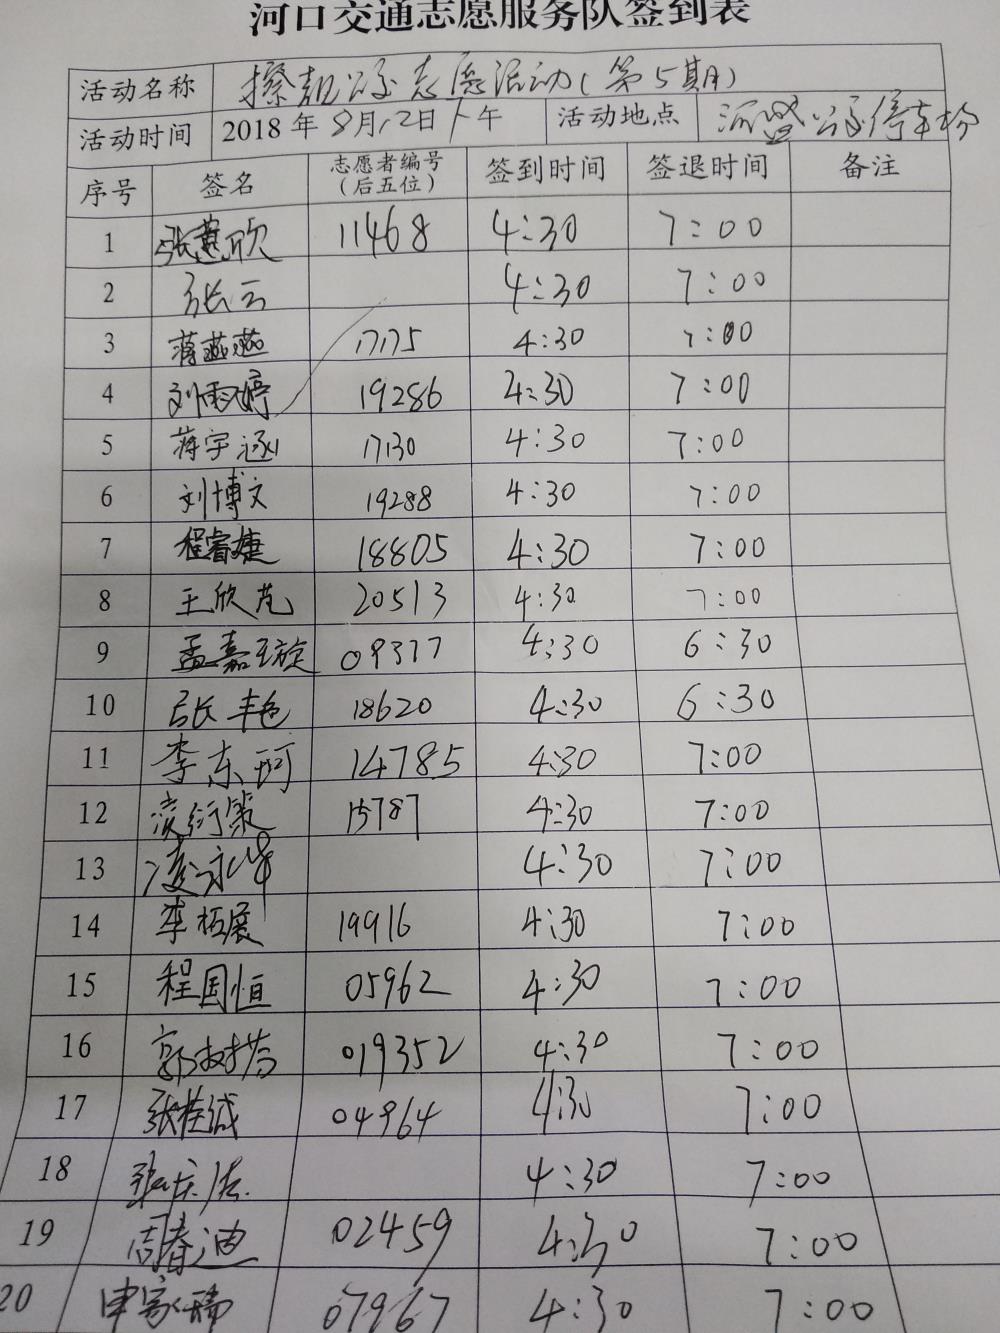 河口交通志愿服务队签到表
活动名称 擦靓公交志愿活动(第5期)
活动时间 2018年8月12日下午 活动地点 河盛公交停车场
序号 签名 志愿者编号(后五位) 签到时间 签退时间 备注
1 张慧欣 11468 4:30 7:00
2 张云 4:30 7:00
3 蒋燕燕 17175 4:30 7:00
4 刘雨婷 19286 4:30 7:00
5 蒋宇涵 17130 4:30 7:00
6 刘博文 19288 4:30 7:00
7 程睿婕 18805 4:30 7:00
8 王欣芃 20513 4:30 7:00
9 孟嘉璇 09377 4:30 6:30
10 张丰色 18620 4:30 6:30
11 李东珂 14785 4:30 7:00
12 凌衍策 15787 4:30 7:00
13 凌永华 4:30 7:00
14 李柘展 19916 4:30 7:00
15 程国恒 05962 4:30 7:00
16 019352 4:30 7:00
17 张桂诚 04964 4:30 7:00
18 4:30 7:00
19 周春迪 02459 4:30 7:00
20 申家瑞 07967 4:30 7:00